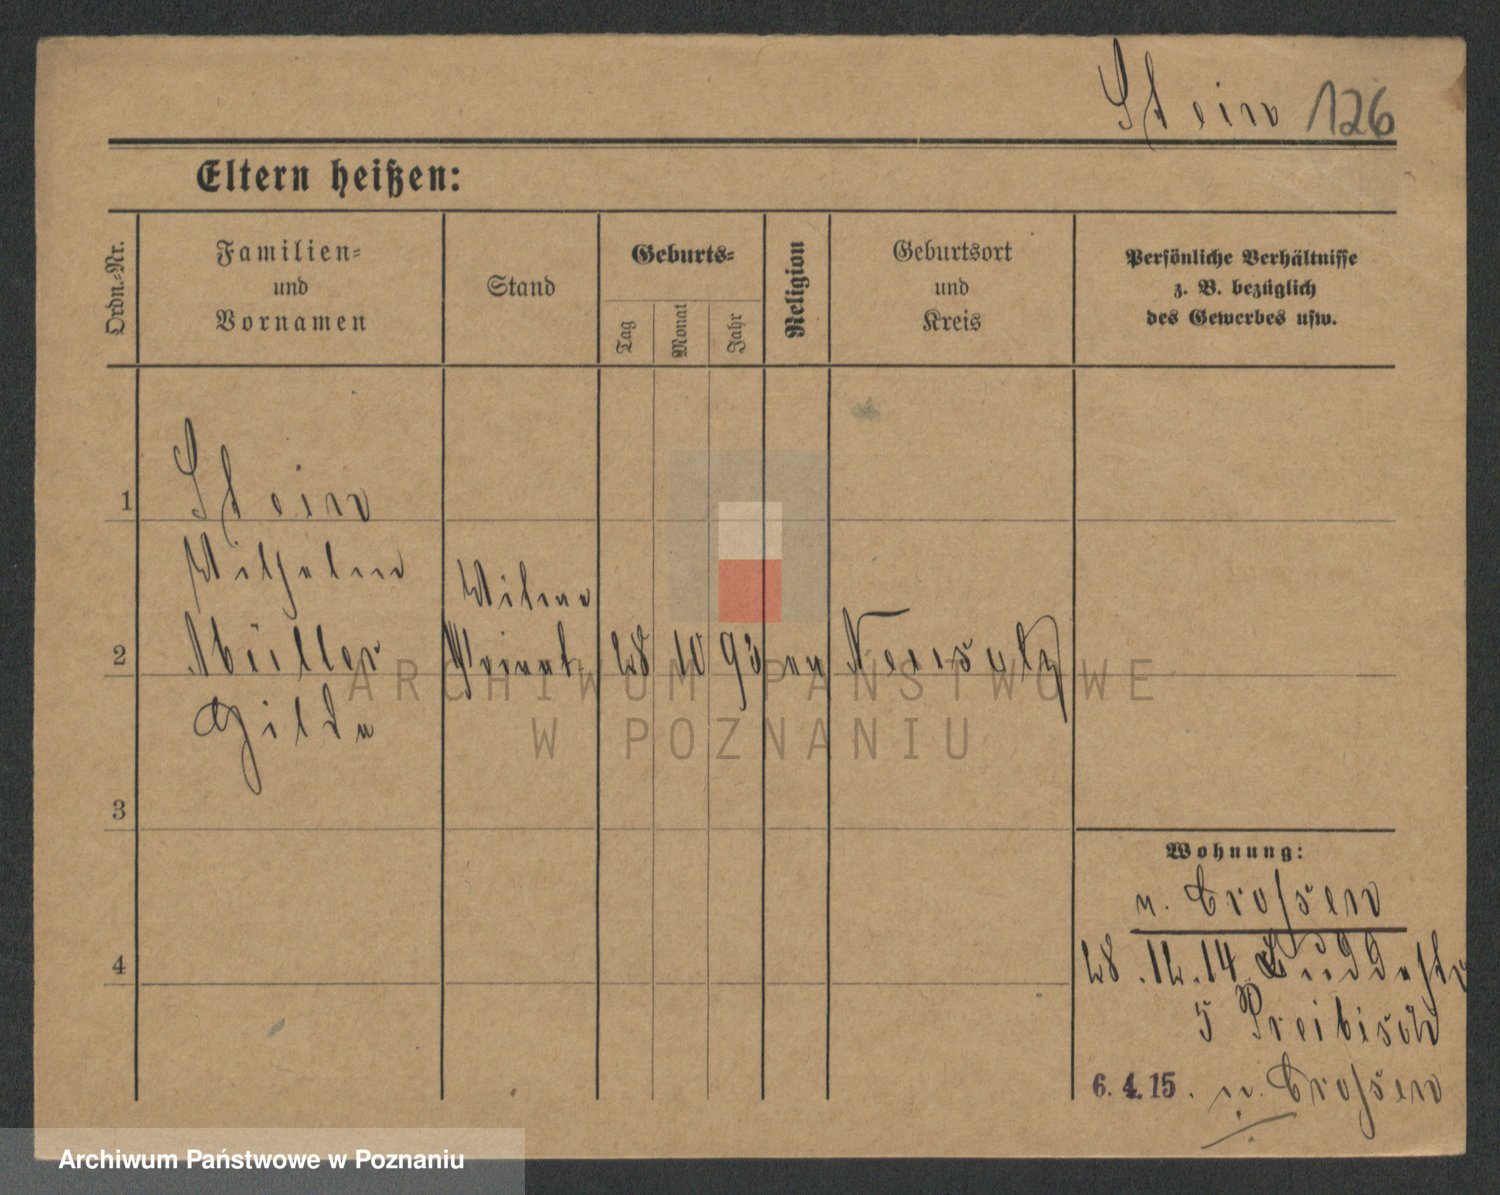 Stein 126
Eltern heißen:
Ordn.-Nr.
Familien-
und
Vornamen
Stand
Geburts-
Tag
Monat
Jahr
Religion
Geburtsort
und
Kreis
Persönliche Verhältnisse
z. B. bezüglich
des Gewerbes usw.
1
Stein
Wilhelm
2
Müller 28 10 93
Hilda
3
4
Wohnung:
n. Crossen
28.12.14
5 Preibisch
6.4.15. n. Crossen
ARCHIWUM PAŃSTWOWE
W POZNANIU
Archiwum Państwowe w Poznaniu